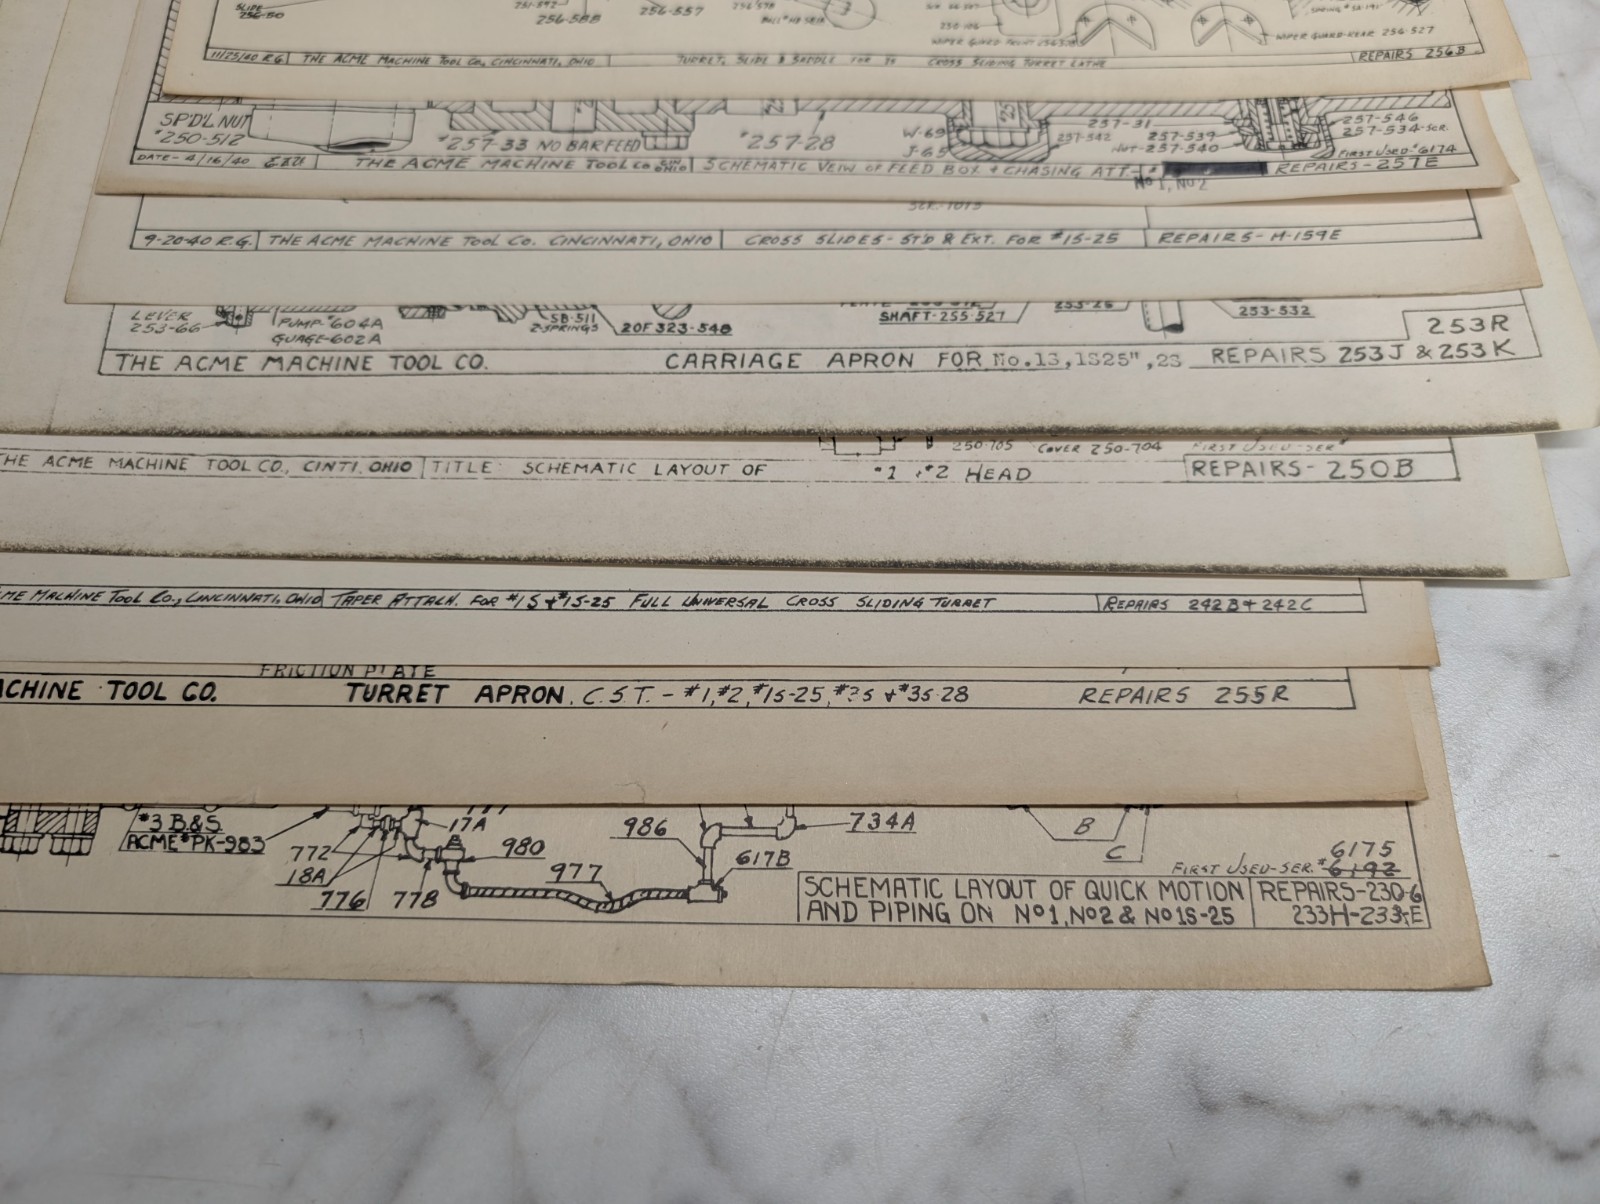 SLIDE
256-50
256-588
256-557
WIPER GUARD-REAR 256-527
11/25/40 R.G. THE ACME MACHINE TOOL CO., CINCINNATI, OHIO TURRET, SLIDE & SADDLE FOR 3S CROSS SLIDING TURRET LATHE REPAIRS 256B
SP'D'L NUT
#250-512
#257-33 NO BAR FEED
#257-28
W-69
J-65
257-542
257-31
257-539
NUT-257-540
257-546
257-534-SCR.
FIRST USED #6174
DATE-4/16/40 THE ACME MACHINE TOOL CO CIN. OHIO SCHEMATIC VEIW OF FEED BOX & CHASING ATT- REPAIRS-257E
No 1, No 2
SCR.-1075
9-20-40 R.G. THE ACME MACHINE TOOL CO. CINCINNATI, OHIO CROSS SLIDES-ST'D & EXT. FOR #1S-25 REPAIRS-H-159E
LEVER
253-66
PUMP-#604A
GUAGE-602A
SB-511
2-SPRINGS
20F323-548
SHAFT-255-527
253-26
253-532
253R
THE ACME MACHINE TOOL CO. CARRIAGE APRON FOR No.13,1S25",23 REPAIRS 253J & 253K
B 250-705 COVER 250-704 FIRST USED-SER#
THE ACME MACHINE TOOL CO., CINTI. OHIO TITLE: SCHEMATIC LAYOUT OF #1 & #2 HEAD REPAIRS-250B
ME MACHINE TOOL CO., CINCINNATI, OHIO TAPER ATTACH. FOR #1S & #1S-25 FULL UNIVERSAL CROSS SLIDING TURRET REPAIRS 242B & 242C
FRICTION PLATE
ACHINE TOOL CO. TURRET APRON. C.S.T.-#1,#2,#1S-25,#3S & #3S-28 REPAIRS 255R
#3 B.&S.
ACME#PK-983
772
18A
776
778
17A
980
977
986
617B
734A
B
C
6175
FIRST USED-SER.# 6192
SCHEMATIC LAYOUT OF QUICK MOTION
AND PIPING ON No1, No2 & No1S-25
REPAIRS-230-6
233H-233-E